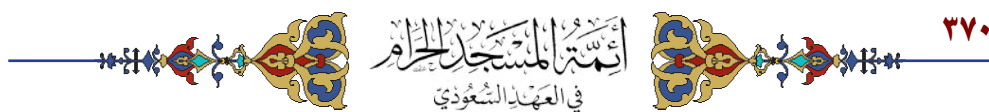 ٣٧٠
أئمة المسجد الحرام
في العهد السعودي